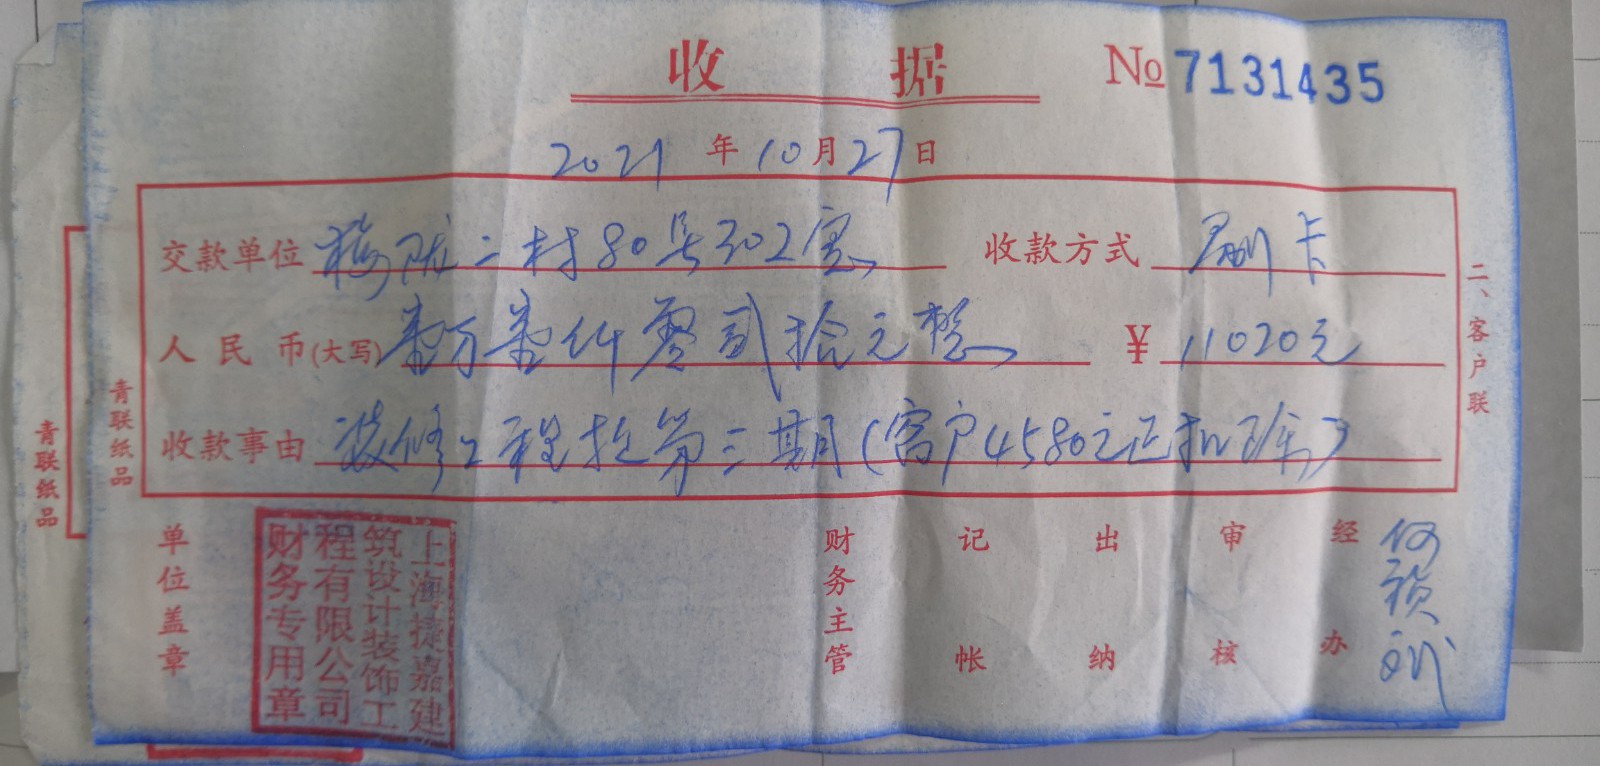 收 据 № 7131435
2021 年 10 月 27 日
交款单位 梅陇二村80号302室 收款方式 刷卡
人民币(大写) 壹万壹仟零贰拾元整 ¥ 11020元
收款事由 装修工程款第三期(客户4580元已扣除)
二、客户联
青联纸品
青联纸品
单位盖章
上海捷嘉建
筑设计装饰工
程有限公司
财务专用章
财务主管 记帐 出纳 审核 经办 何